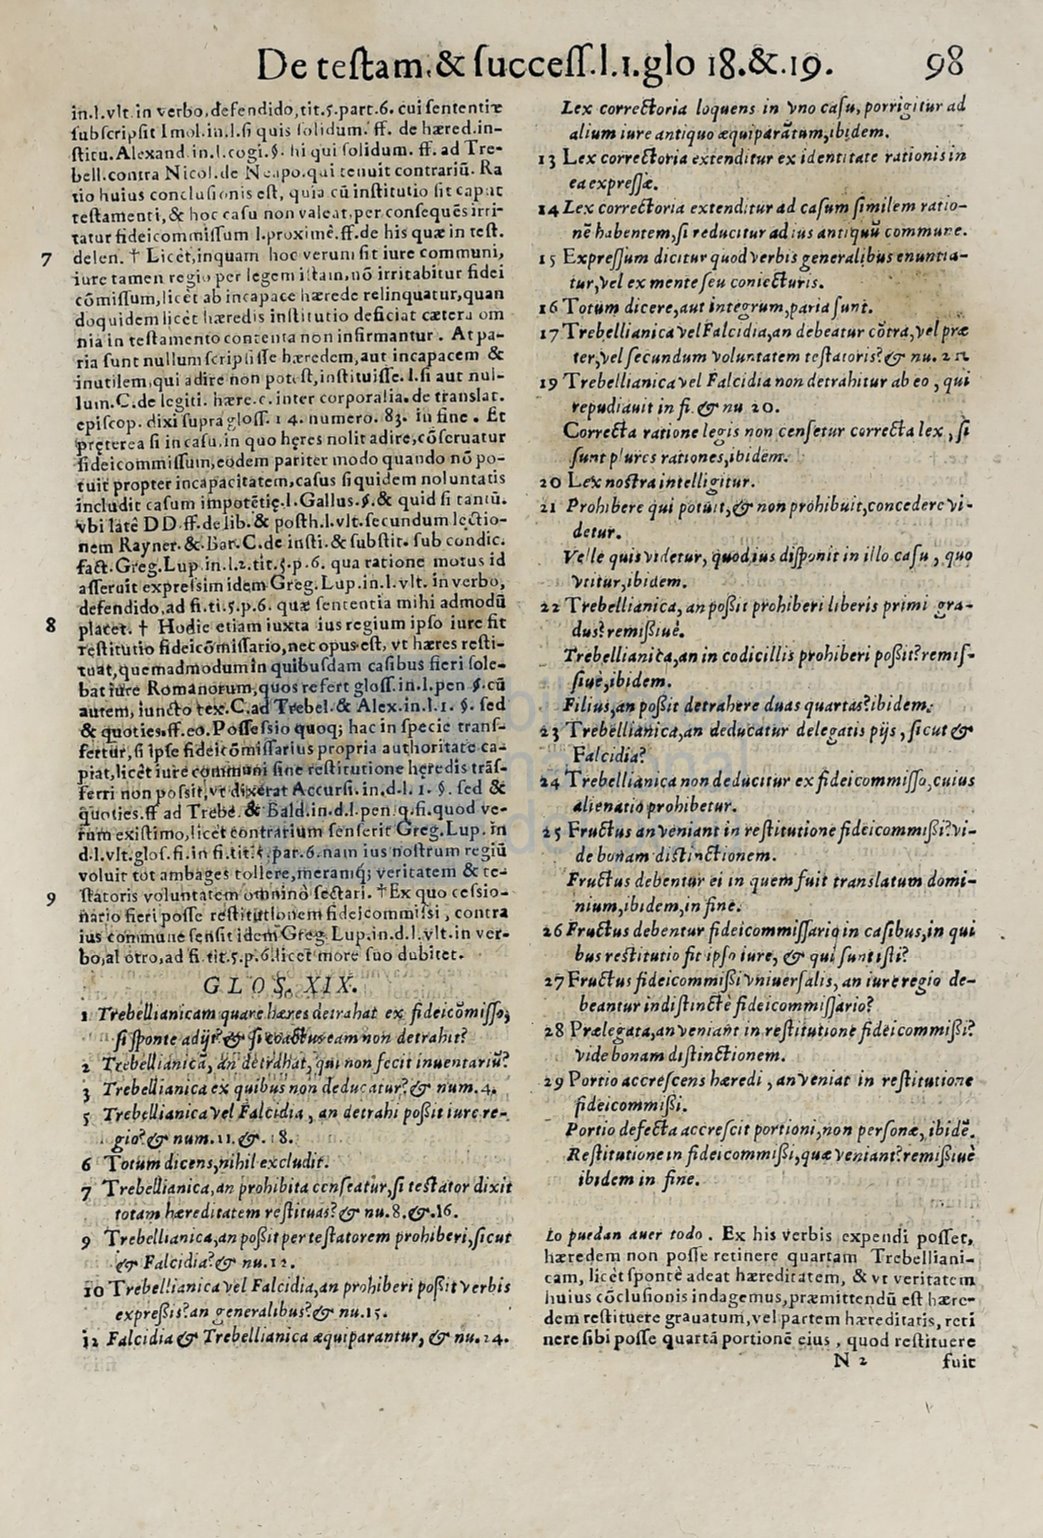 De testam.& success.l.1.glo 18.&.19. 98
in.l.vlt.in verbo,defendido,tit.5.part.6.cui sententiæ
subscripsit Imol.in.l.si quis solidum. ff. de hæred.in-
stitu.Alexand.in.l.cogi.§. hi qui solidum. ff. ad Tre-
bell.contra Nicol.de Neapo.qui tenuit contrariũ. Ra
tio huius conclusionis est, quia cũ institutio sit caput
testamenti,& hoc casu non valeat,per consequẽs irri-
tatur fideicommissum l.proximè.ff.de his quæ in test.
7 delen. † Licèt,inquam hoc verum sit iure communi,
iure tamen regio per legem istam,nõ irritabitur fidei
cõmissum,licèt ab incapace hærede relinquatur,quan
doquidem licèt hæredis institutio deficiat cætera om
nia in testamento contenta non infirmantur . At pa-
ria sunt nullum scripsisse hæredem,aut incapacem &
inutilem,qui adire non potest,instituisse.l.si aut nul-
lum.C.de legiti. hære.c.inter corporalia.de translat.
episcop. dixi supra gloss. 14. numero. 83. in fine . Et
pręterea si in casu,in quo hęres nolit adire,cõseruatur
fideicommissum,eodem pariter modo quando nõ po-
tuit propter incapacitatem,casus siquidem noluntatis
includit casum impotẽtię.l.Gallus.§.& quid si tantũ.
vbi latè DD.ff.de lib.& posth.l.vlt.secundum lectio-
nem Rayner.& Bar.C.de insti.& substit. sub condic.
fact.Greg.Lup.in.l.2.tit.5.p.6. qua ratione motus id
asseruit expressim idem Greg.Lup.in.l.vlt. in verbo,
defendido,ad fi.ti.5.p.6. quæ sententia mihi admodũ
8 placet. † Hodie etiam iuxta ius regium ipso iure fit
restitutio fideicõmissario,nec opus est, vt hæres resti-
tuat,quemadmodum in quibusdam casibus fieri sole-
bat iure Romanorum,quos refert gloss.in.l.pen §.cũ
autem, iuncto tex.C.ad Trebel.& Alex.in.l.1. §. sed
& quoties.ff.eo.Possessio quoq; hac in specie trans-
fertur,si ipse fideicõmissarius propria authoritate ca-
piat,licèt iure communi sine restitutione hęredis trãs-
ferri non possit,vt dixerat Accursi.in.d.l. 1. §. sed &
quoties.ff ad Trebe. & Bald.in.d.l.pen.q.fi.quod ve-
rum existimo,licèt contrarium senserit Greg.Lup. in
d.l.vlt.glos.fi.in fi.tit.5.par.6.nam ius nostrum regiũ
voluit tot ambages tollere,meramq; veritatem & te-
9 statoris voluntatem omnino sectari. † Ex quo cessio-
nario fieri posse restitutionem fideicommissi , contra
ius commune sensit idem Greg.Lup.in.d.l.vlt.in ver-
bo,al otro,ad fi.tit.5.p.6.licet more suo dubitet.
GLOS. XIX.
1 Trebellianicam quare hæres detrahat ex fideicõmisso,
si sponte adijt? & si coactus eam non detrahit?
2 Trebellianicã, an detrahat, qui non fecit inuentariũ?
3 Trebellianica ex quibus non deducatur? & num.4.
5 Trebellianica vel Falcidia , an detrahi possit iure re-
gio? & num.11.&.18.
6 Totum dicens,nihil excludit.
7 Trebellianica,an prohibita censeatur,si testator dixit
totam hæreditatem restituas? & nu.8.&.16.
9 Trebellianica,an possit per testatorem prohiberi,sicut
& Falcidia? & nu.12.
10 Trebellianica vel Falcidia,an prohiberi possit verbis
expressis?an generalibus? & nu.15.
12 Falcidia & Trebellianica æquiparantur, & nu.14.
Lex correctoria loquens in vno casu, porrigitur ad
alium iure antiquo æquiparatum,ibidem.
13 Lex correctoria extenditur ex identitate rationis in
ea expressæ.
14 Lex correctoria extenditur ad casum similem ratio-
nẽ habentem,si reducitur ad ius antiquũ commune.
15 Expressum dicitur quod verbis generalibus enuntia-
tur,vel ex mente seu coniecturis.
16 Totum dicere,aut integrum,paria sunt.
17 Trebellianica vel Falcidia,an debeatur cõtra,vel præ
ter,vel secundum voluntatem testatoris? & nu. 21.
19 Trebellianica vel Falcidia non detrahitur ab eo , qui
repudiauit in fi. & nu 20.
Correcta ratione legis non censetur correcta lex , si
sunt plures rationes,ibidem.
20 Lex nostra intelligitur.
21 Prohibere qui potuit,& non prohibuit,concedere vi-
detur.
Velle quis videtur, quod ius disponit in illo casu , quo
vtitur,ibidem.
22 Trebellianica, an possit prohiberi liberis primi gra-
dus?remissiuè.
Trebellianica,an in codicillis prohiberi possit?remis-
siuè,ibidem.
Filius,an possit detrahere duas quartas?ibidem.
23 Trebellianica,an deducatur delegatis pijs, sicut &
Falcidia?
24 Trebellianica non deducitur ex fideicommisso,cuius
alienatio prohibetur.
25 Fructus an veniant in restitutione fideicommissi?vi-
de bonam distinctionem.
Fructus debentur ei in quem fuit translatum domi-
nium,ibidem,in fine.
26 Fructus debentur fideicommissario in casibus,in qui
bus restitutio fit ipso iure, & qui sunt isti?
27 Fructus fideicommissi vniuersalis, an iure regio de-
beantur indistinctè fideicommissario?
28 Prælegata,an veniant in restitutione fideicommissi?
vide bonam distinctionem.
29 Portio accrescens hæredi , an veniat in restitutione
fideicommissi.
Portio defecta accrescit portioni,non personæ, ibidẽ.
Restitutione in fideicommissi,quæ veniant?remissiuè
ibidem in fine.
Lo puedan auer todo . Ex his verbis expendi posset,
hæredem non posse retinere quartam Trebelliani-
cam, licèt spontè adeat hæreditatem, & vt veritatem
huius cõclusionis indagemus,præmittendũ est hære-
dem restituere grauatum,vel partem hæreditatis, reti
nere sibi posse quartã portionẽ eius , quod restituere
N 2 fuit